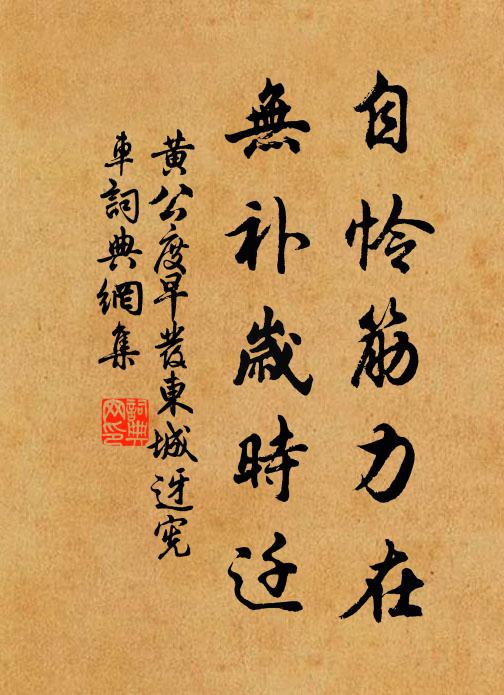 自怜筋力在
無补歲時迁
黄公度早發東城迓宪
車詞典網集
詞典网印